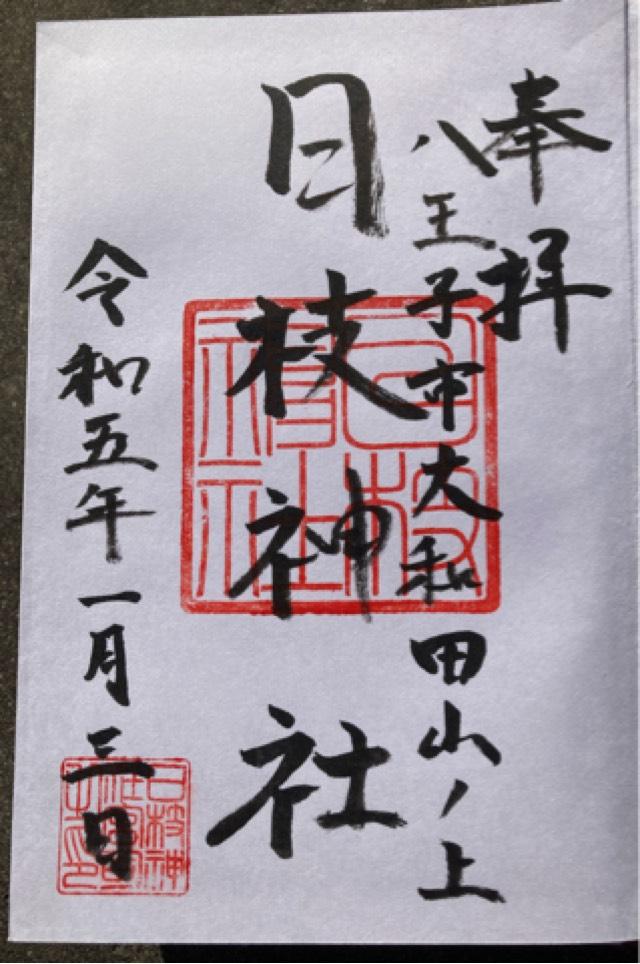 奉拝
八王子市大和田山ノ上
日枝神社
日枝神社
令和五年一月三日